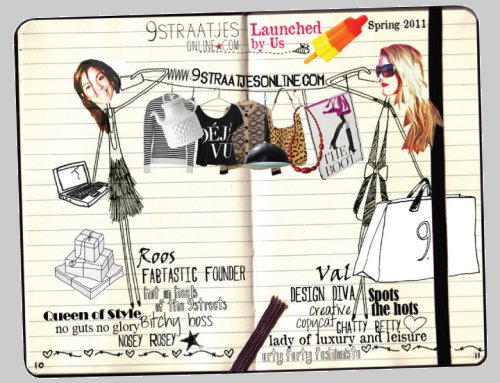 9STRAATJES
ONLINE★COM
Launched
by Us
Spring 2011
WWW.9STRAATJESONLINE.COM
DÉJÀ
VU
THE
BOOT
9.
Roos
FABTASTIC FOUNDER
hot on heels
of the 9streets
Queen of Style
no guts no glory
Bitchy boss
NOSEY ROSEY
10
Val
DESIGN DIVA
Spots
the hots
creative
copycat
CHATTY BETTY
lady of luxury and leisure
arty farty fashionista
11